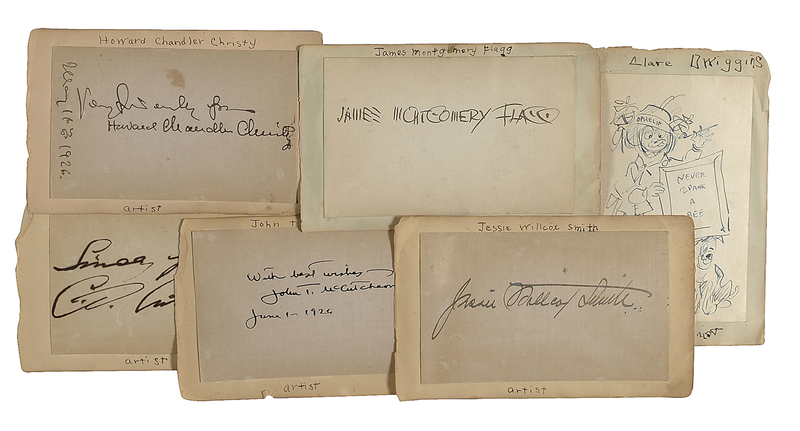 Howard Chandler Christy
May 14th 1926.
Very Sincerely from
Howard Chandler Christy
artist
James Montgomery Flagg
JAMES MONTGOMERY FLAGG
Clare Dwiggins
OPHELIA
NEVER
SPANK
A
BEE
artist
John T
With best wishes
John T. McCutcheon
June 1 - 1926
artist
Jessie Willcox Smith
Jessie Willcox Smith
artist